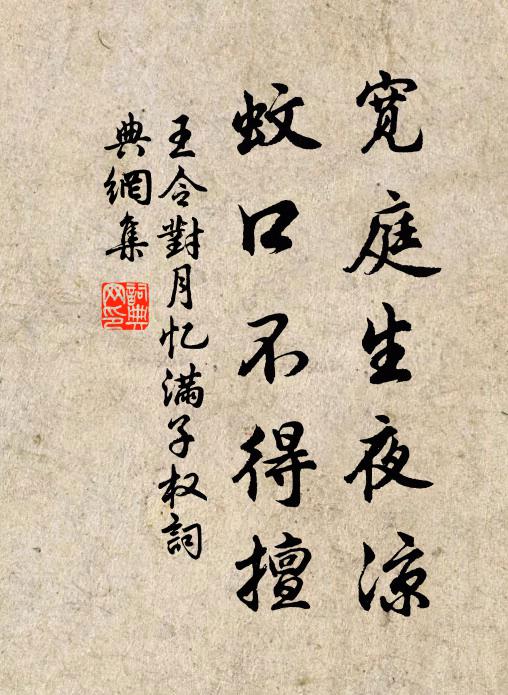 宽庭生夜凉
蚊口不得擅
王令對月忆满子权詞
典網集
詞典網印